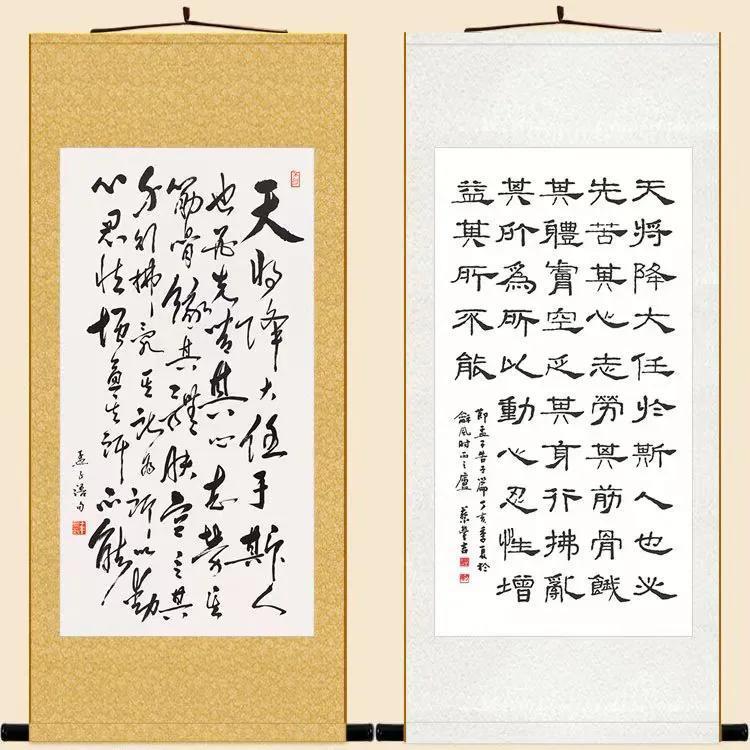 天将降大任于斯人
也必先苦其心志劳其
筋骨餓其體肤空乏其
身行拂亂其所為所以動
心忍性增益其所不能
孟子语句
天將降大任於斯人也必
先苦其心志勞其筋骨餓
其體膚空乏其身行拂亂
其所為所以動心忍性增
益其所不能
節孟子告子篇丁亥季夏於
龢風時雨之廬 蔡豐吉